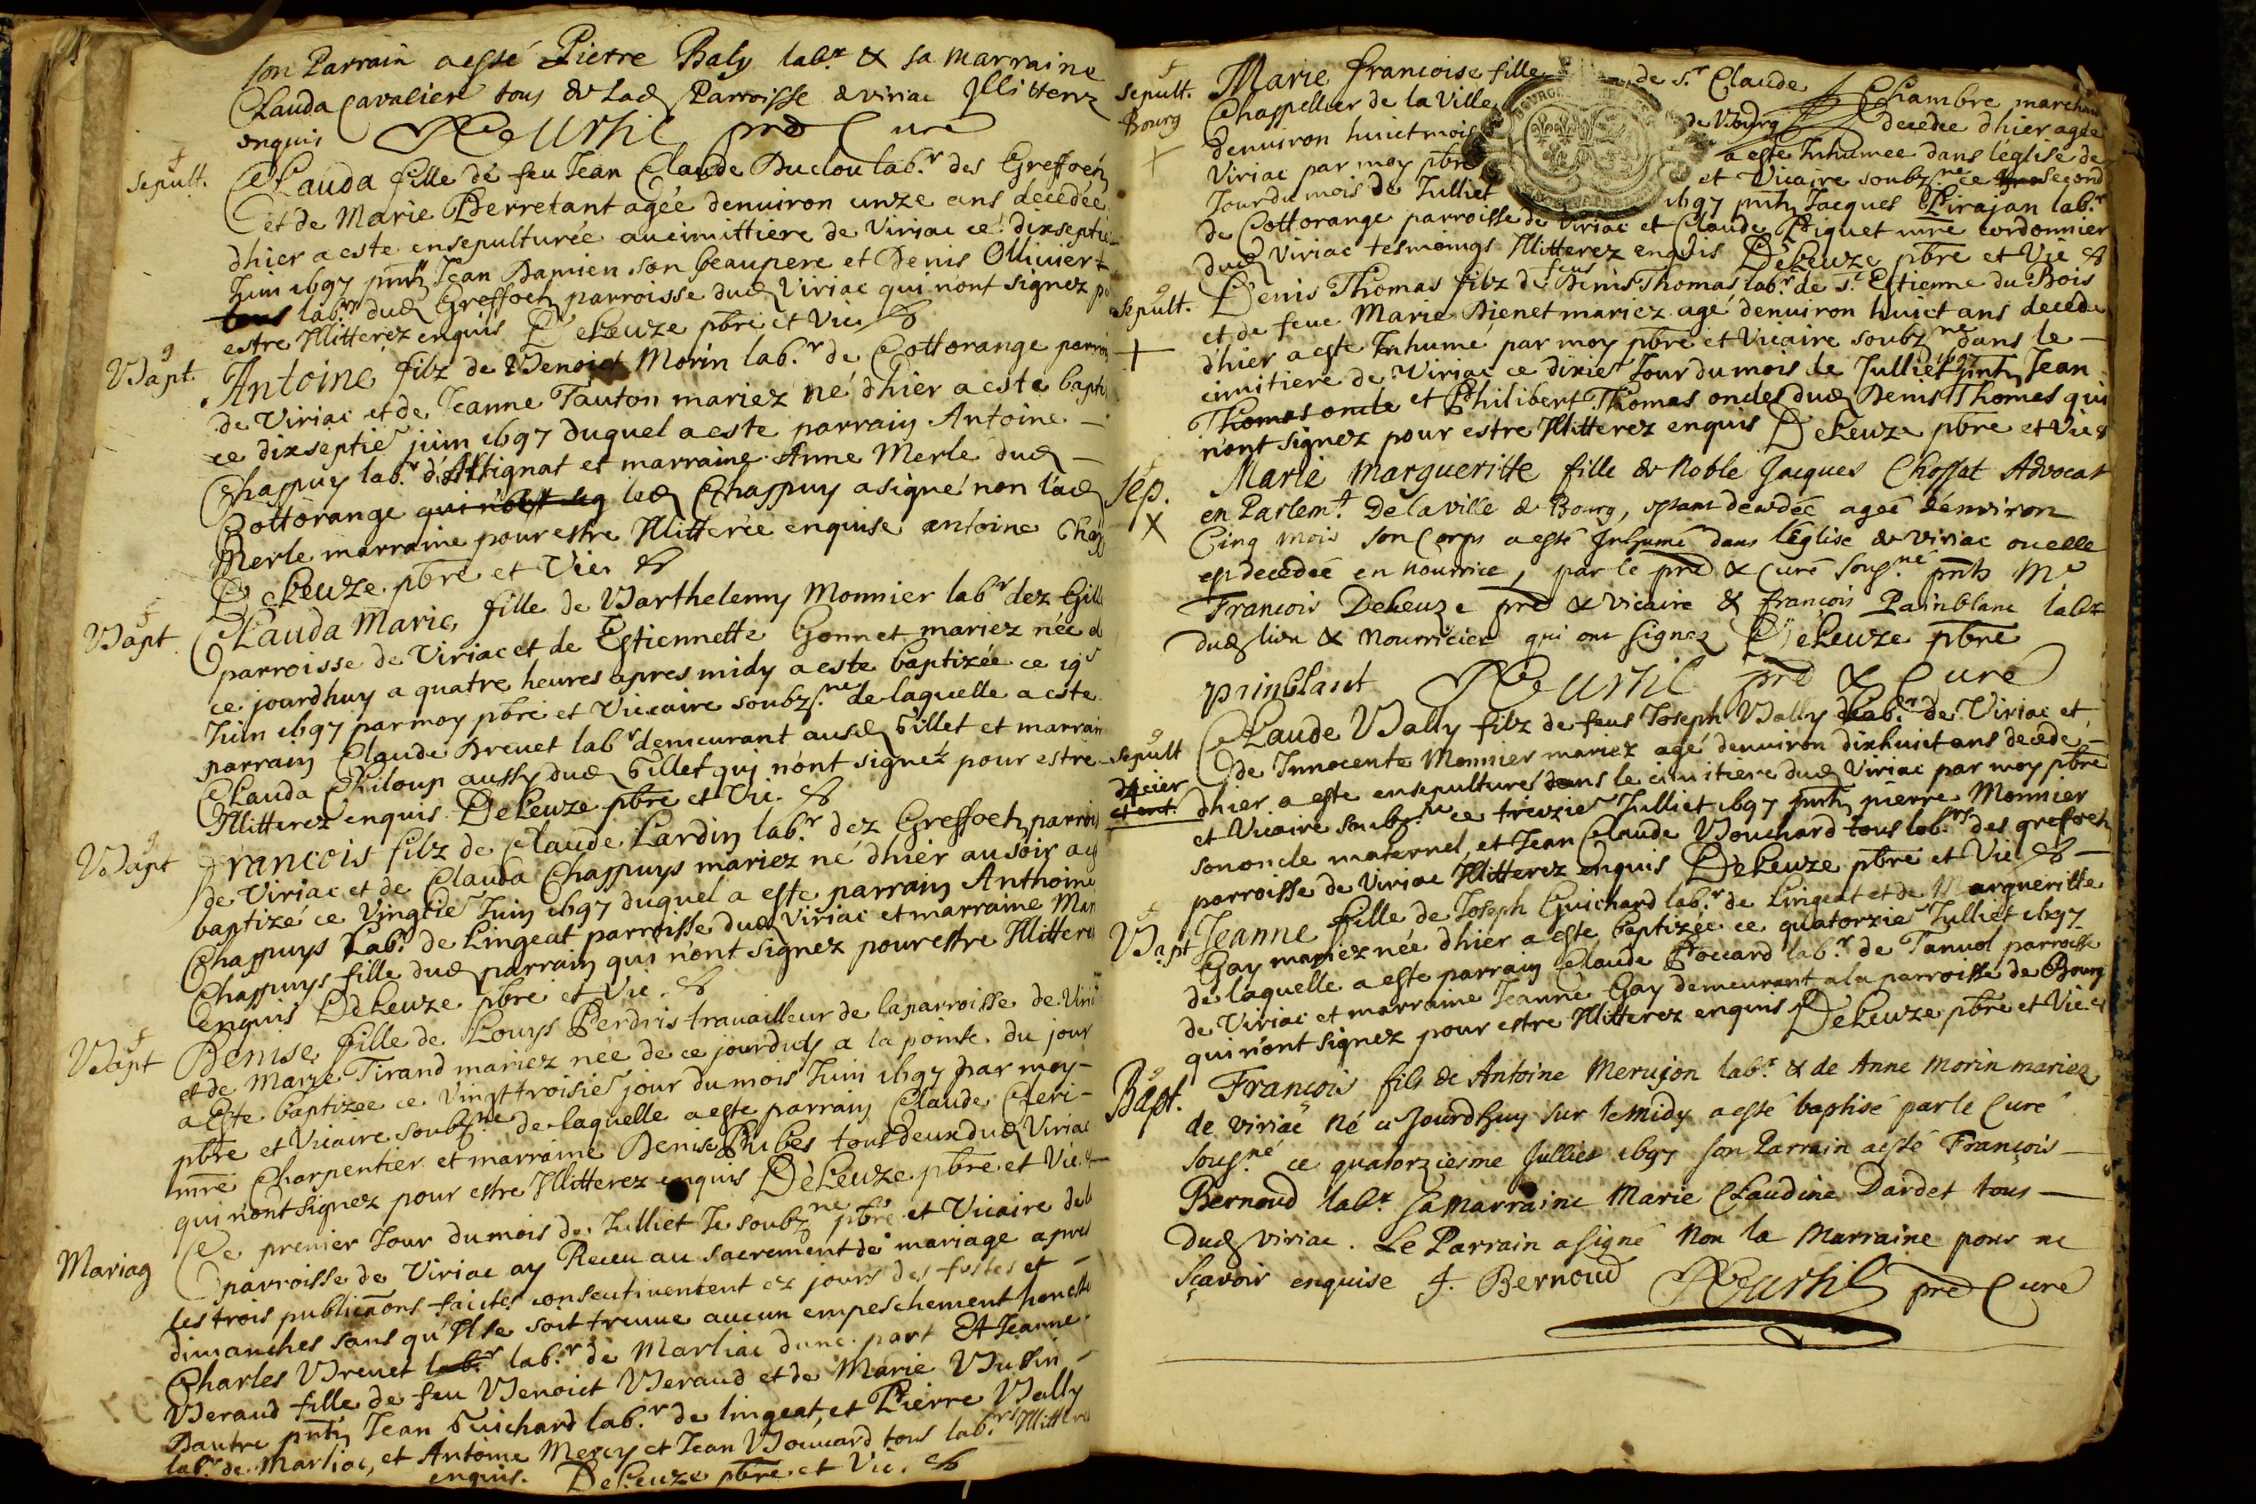 son Parrain a esté Pierre Baly lab.r & sa marraine
Clauda Cavalier tous de lad Parroisse de viriac Illitterez
enquis pre Curé
f
sepult.
Clauda fille de feu Jean Claude Duclou lab.r des Greffoetz
et de Marie Perretant agée denuiron unze ans décédée
dhier a este ensepulturée au cimittiere de Viriac ce dixseptie
Juin 1697 pntz Jean Damien son beaupere et Denis Ollivier
tous lab.rs dud Greffoetz parroisse dud Viriac qui nont signez po
estre Illitterez enquis DeLeuze pbre et Vic
g
Bapt.
Antoine filz de Benoict Morin lab.r de Cottorange parrois
de Viriac et de Jeanne Tauton mariez né dhier a este bapti
ce dixseptie juin 1697 duquel a este parrain Antoine
Chappuy lab.r d'Attignat et marraine Anne Merle dud
Cottorange qui n'ont sig led Chappuy a signé non lad
Merle marraine pour estre Illitterée enquise antoine Chapp
DeLeuze pbre et Vic
f
Bapt
Clauda Marie, fille de Barthelemy Monnier lab.r dez Gille
parroisse de Viriac et de Estiennette Gonnet mariez née d
ce jourdhuy a quatre heures apres midy a este baptizée ce 19e
Juin 1697 par moy pbre et Viccaire soubz.né de laquelle a este
parrain Claude Brevet lab.r demeurant aud Gillet et marrain
Clauda Chiloup aussy dud Gillet qui n'ont signez pour estre
Illitterez enquis DeLeuze pbre et Vic.
g
Bapt
Francois filz de Claude Lardin lab.r dez Greffoetz parrois
de Viriac et de Clauda Chappuys mariez né dhier au soir a es
baptizé ce Vingtie Juin 1697 duquel a este parrain Anthoine
Chappuys Lab.r de Lingeat parroisse dud Viriac et marraine Mar
Chappuys fille dud parrain qui n'ont signez pour estre Illittere
enquis DeLeuze pbre et Vic.
f
Bapt
Denise fille de Louys Perdris travailleur de la parroisse de Viri
et de Marie Tirand mariez née de ce jourduy a la pointe du jour
a este baptizee ce Vingttroisie jour du mois Juin 1697 par moy
pbre et Vicaire soubz.ne de laquelle a este parrain Claude Cleri-
mre Charpentier et marraine Denise Pubes tous deux dud Viriac
qui n'ont signez pour estre Illitterez enquis DeLeuze pbre et Vic.
Mariag
Ce premier Jour du mois de Julliet Je soubz.ne pbre et Vicaire de la
parroisse de Viriac ay Receu au sacrement de mariage apres
les trois publications faictes consecutivement ez jours des festes et
dimanches sans qu'Il se soit treuue aucun empeschement honeste
Charles Brevet lab.r lab.r de Marliac dune part Et Jeanne
Beraud fille de feu Benoict Beraud et de Marie Buffin
Dautre pntz Jean Guichard lab.r de lingeat, et Pierre Bally
lab.r de Marliac, et Antoine Mercy et Jean Bouuard tous lab.rs Illittere
enquis. DeLeuze pbre et Vic.
f
sepult.
Bourg
Marie francoise fille de s.r Claude Chambre marchan
Chappellier de la Ville de Bourg decedee dhier agée
denuiron huict mois a este Inhumee dans l'eglise de
Viriac par moy pbre et Vicaire soubz.ne ce second
Jour du mois de Julliet 1697 pntz Jacques Pirajan lab.r
de Cottorange parroisse de Viriac et Claude Piquet mre cordonnier
dud Viriac tesmoings Illitterez enquis DeLeuze pbre et Vic
g
sepult.
Denis Thomas filz de feus Denis Thomas lab.r de St. Estienne du Bois
et de feue Marie Bienet mariez agé denuiron huict ans decede
dhier a este Inhumé par moy pbre et Vicaire soubz.ne dans le
cimitiere de Viriac ce dixie Jour du mois de Julliet 1697 pntz Jean
Thomas oncle et Philibert Thomas oncles dud Denis Thomas qui
n'ont signez pour estre Illitterez enquis DeLeuze pbre et Vic
f
sep.
Marie Margueritte fille de Noble Jacques Chossat Advocat
en Parlem.t De la ville de Bourg, estant decedée ageé denviron
Cinq mois son Corps a esté Inhumé dans l'Eglise de viriac ou elle
est decedeé en nourrice, par le pre & Curé sousg.né pnts Mre
Francois DeLeuze pre & vicaire & françois Painblanc labr
dud lieu & Nourricier qui ont signez DeLeuze pbre
painblant pre & Curé
g
sepult
Claude Bally filz de feus Joseph Bally lab.r de Viriac et
de Innocente Monnier mariez agé denuiron dixhuict ans decede
dhier a este ensepulturé dans le cimitiere dud Viriac par moy pbre
et Vicaire soubz.ne ce treizie Julliet 1697 pntz pierre Monnier
son oncle maternel, et Jean Claude Bouchard tous lab.rs des greffoetz
parroisse de Viriac Illitterez enquis DeLeuze pbre et Vic
f
Bapt
Jeanne fille de Joseph Guichard lab.r de Lingeat et de Margueritte
Gay mariez née dhier a este baptizée ce quatorzie Julliet 1697
de laquelle a este parrain Claude Poccard lab.r de Tanuol parroisse
de Viriac et marraine Jeanne Gay demeurant a la parroisse de Bourg
qui n'ont signez pour estre Illitterez enquis DeLeuze pbre et Vic
g
Bapt.
François fils de Antoine Meruçon lab.r & de Anne Morin mariez
de viriac Né a Jourdhuy sur le midy a esté baptisé par le Curé
sousg.né ce quatorziesme Julliet 1697 son Parrain a esté François
Bernoud lab.r sa Marraine Marie Claudine Dardet tous
dud viriac. Le Parrain a signé Non la Marraine pour ne
sçavoir enquise f. Bernoud pre Curé